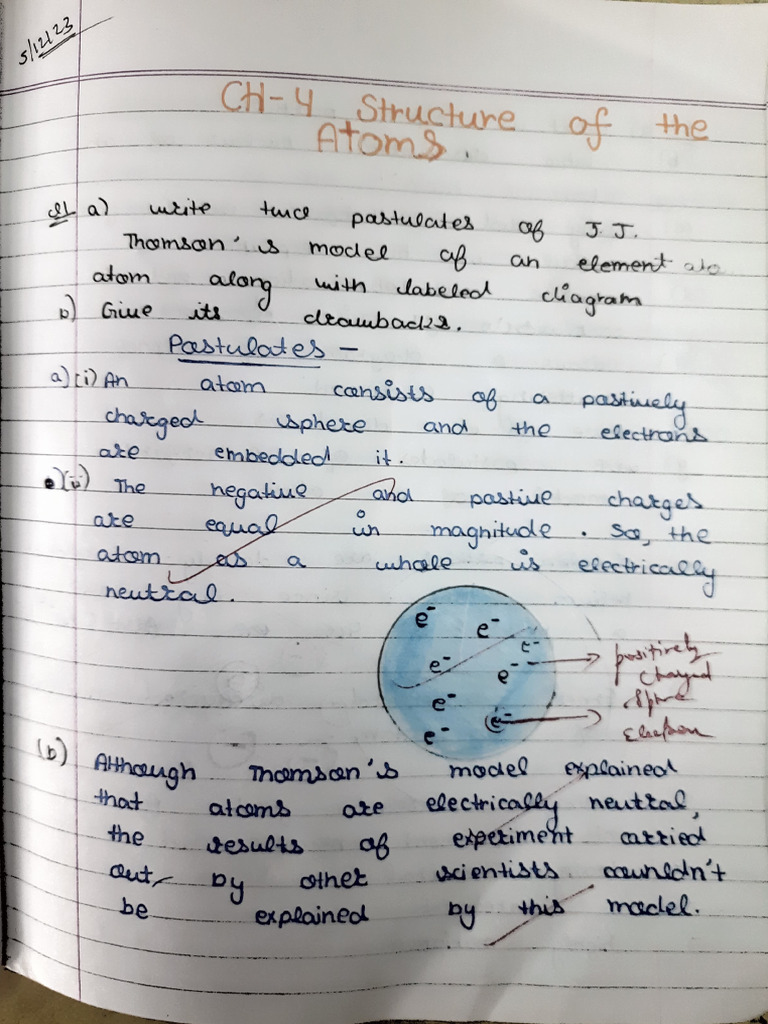 5/12/23
CH-4 Structure of the
Atoms.
Q1 a) write two postulates of J.J.
Thomson's model of an element ato
atom along with labeled diagram
b) Give its drawbacks.
Postulates -
a)(i) An atom consists of a postively
charged sphere and the electrons
are embedded it.
(ii) The negative and postive charges
are equal in magnitude. So, the
atom as a whole is electrically
neutral.
e- e- e- e- e- e- e- e-
positively
charged
sphre
Electron
(b) Although Thomson's model explained
that atoms are electrically neutral,
the results of experiment carried
out, by other scientists counldn't
be explained by this model.